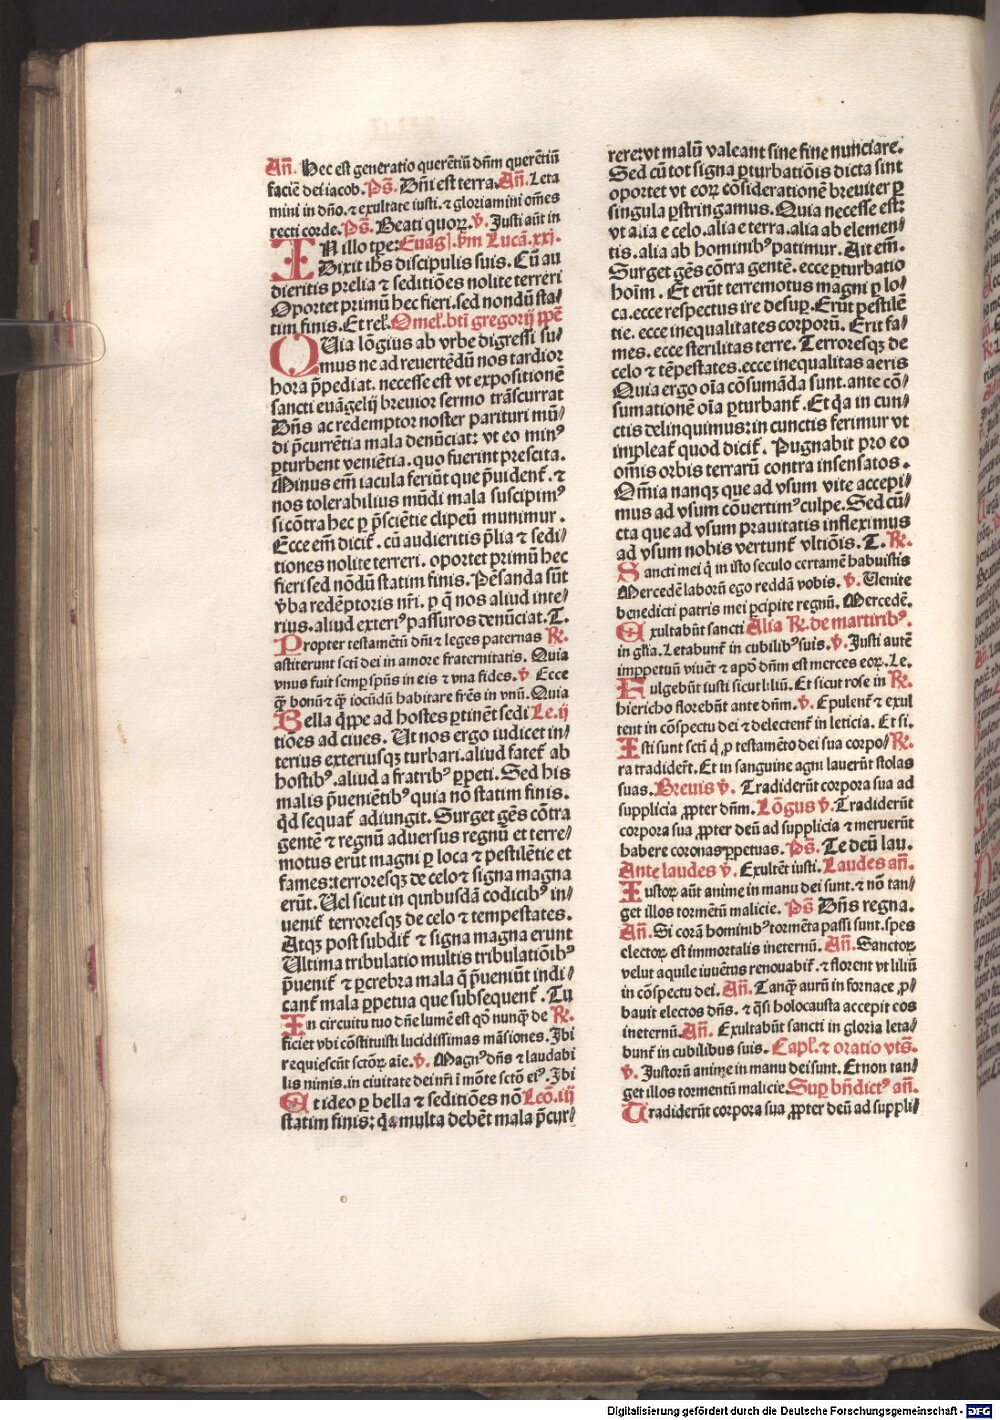 Añ. Hec est generatio querẽtiũ dñm querẽtiũ
faciẽ dei iacob. Ps̃. Dñi est terra. Añ. Leta
mini in dño. ⁊ exultate iusti. ⁊ gloriamini om̃es
recti corde. Ps̃. Beati quoꝝ. ꝟ. Justi aũt in
IN illo tp̃e: Euãg̃l. ẜm Lucã. xxj.
Dixit ihs discipulis suis. Cũ au
dieritis prelia ⁊ seditiões nolite terreri
Oportet primũ hec fieri. sed nondũ sta⸗
tim finis. Et rel̃. Omel̃. bti̇̃ gregorij pp̃e
QUia lõgius ab vrbe digressi su⸗
mus ne ad reuertẽdũ nos tardior
hora p̃pediat. necesse est vt expositionẽ
sancti euãgelij breuior sermo trãscurrat
Dñs ac redemptor noster parituri mũ⸗
di p̃currẽtia mala denũciat: vt eo minꝰ
ꝑturbent veniẽtia. quo fuerint prescita.
Minus em̃ iacula feriũt que p̃uident̃. ⁊
nos tolerabilius mũdi mala suscipimꝰ
si cõtra hec ꝑ p̃sciẽtie clipeũ munimur.
Ecce em̃ dicit̃. cũ audieritis p̃lia ⁊ sedi⸗
tiones nolite terreri. oportet primũ hec
fieri sed nõdũ statim finis. Pẽsanda sũt
ꝟba redẽptoris nr̃i. ꝑ q̃ nos aliud inte⸗
rius. aliud exteriꝰ passuros denũciat. T.
Propter testamẽtũ dñi ⁊ leges paternas ℟.
astiterunt scti̇̃ dei in amore fraternitatis. Quia
vnus fuit semꝑ spũs in eis ⁊ vna fides. ꝟ Ecce
q̃ bonũ ⁊ q̃ iocũdũ habitare fr̃es in vnũ. Quia
Bella q̃ppe ad hostes ꝑtinẽt sedi Le. ij
tiões ad ciues. Ut nos ergo iudicet in⸗
terius exteriusqꝫ turbari. aliud fatet̃ ab
hostibꝰ. aliud a fratribꝰ ꝑpeti. Sed his
malis p̃uenietibꝰ quia nõ statim finis.
q̃d sequat̃ adiungit. Surget gẽs cõtra
gentẽ ⁊ regnũ aduersus regnũ et terre⸗
motus erũt magni ꝑ loca ⁊ pestilẽtie et
fames: terroresqꝫ de celo ⁊ signa magna
erũt. Uel sicut in quibusdã codicibꝰ in⸗
uenit̃ terroresqꝫ de celo ⁊ tempestates.
Atqꝫ post subdit̃ ⁊ signa magna erunt
Ultima tribulatio multis tribulatiõibꝰ
p̃uenit̃ ⁊ ꝑ crebra mala q̃ p̃ueniũt indi⸗
cant̃ mala ꝑpetua que subsequent̃. Tu
In circuitu tuo dñe lumẽ est qð nunq̃ de ℟.
ficiet vbi cõstituisti lucidissimas mãsiones. Jbi
requiescũt sctõꝝ aĩe. ꝟ. Magnꝰ dñs ⁊ laudabi
lis nimis. in ciuitate dei nr̃i ĩ mõte sctõ eiꝰ. Jbi
Et ideo ꝑ bella ⁊ seditiões nõ Leõ. iij
statim finis: q̃a multa debẽt mala p̃cur⸗
rere: vt malũ valeant sine fine nunciare.
Sed cũ tot signa ꝑturbatiõis dicta sint
oportet vt eoꝝ cõsiderationẽ breuiter ꝑ
singula ꝑstringamus. Quia necesse est:
vt alia e celo. alia e terra. alia ab elemen⸗
tis. alia ab hominibꝰ patimur. Ait em̃.
Surget gẽs cõtra gentẽ. ecce ꝑturbatio
hoim̃. Et erũt terremotus magni ꝑ lo⸗
ca. ecce respectus ire desuꝑ. Erũt pestilẽ
tie. ecce inequalitates corporũ. Erit fa⸗
mes. ecce sterilitas terre. Terroresqꝫ de
celo ⁊ tẽpestates. ecce inequalitas aeris
Quia ergo oĩa cõsumãda sunt. ante cõ⸗
sumationẽ oĩa ꝑturbant̃. Et q̃a in cun⸗
ctis delinquimus: in cunctis ferimur vt
impleat̃ quod dicit̃. Pugnabit pro eo
om̃is orbis terrarũ contra insensatos.
Om̃ia nanqꝫ que ad vsum vite accepi⸗
mus ad vsum cõuertimꝰ culpe. Sed cũ⸗
cta que ad vsum prauitatis infleximus
ad vsum nobis vertunt̃ vltiõis. T. ℟.
Sancti mei q̃ in isto seculo certamẽ habuistis
Mercedẽ laborũ ego reddã vobis. ꝟ. Uenite
benedicti patris mei ꝑcipite regnũ. Mercedẽ.
Exultabũt sancti Alia ℟. de martiribꝰ.
in gl̃ia. Letabunt̃ in cubilibꝰ suis. ꝟ. Justi autẽ
imꝑpetuũ viuẽt ⁊ apð dñm est merces eoꝝ. Le.
Fulgebũt iusti sicut liliũ. Et sicut rose in ℟.
hiericho florebũt ante dñm. ꝟ. Epulent̃ ⁊ exul
tent in cõspectu dei ⁊ delectent̃ in leticia. Et si.
Isti sunt scti̇̃ q̃ ꝓ testamẽto dei sua corpo⸗ ℟.
ra tradider̃t. Et in sanguine agni lauerũt stolas
suas. Breuis ꝟ. Tradiderũt corpora sua ad
supplicia ꝓpter dñm. Lõgus ꝟ. Tradiderũt
corpora sua ꝓpter deũ ad supplicia ⁊ meruerũt
habere coronas ꝑpetuas. Ps̃. Te deũ lau.
Ante laudes ꝟ. Exultẽt iusti. Laudes añ.
Iustoꝝ aũt anime in manu dei sunt. ⁊ nõ tan⸗
get illos tormẽtũ malicie. Ps̃ Dñs regna.
Añ. Si corã hominibꝰ tormẽta passi sunt. spes
electoꝝ est immortalis ineternũ. Añ. Sanctoꝝ
velut aquile iuuẽtus renouabit̃. ⁊ florent vt liliũ
in cõspectu dei. Añ. Tanq̃ aurũ in fornace ꝓ⸗
bauit electos dñs. ⁊ q̃si holocausta accepit eos
ineternũ. Añ. Exultabũt sancti in gloria leta⸗
bunt̃ in cubilibus suis. Capl̃. ⁊ oratio vts̃.
ꝟ. Justorũ anime in manu dei sunt. Et non tan⸗
get illos tormentũ malicie. Suꝑ bñdictꝰ añ.
Tradiderũt corpora sua ꝓpter deũ ad suppli⸗
Digitalisierung gefördert durch die Deutsche Forschungsgemeinschaft - DFG